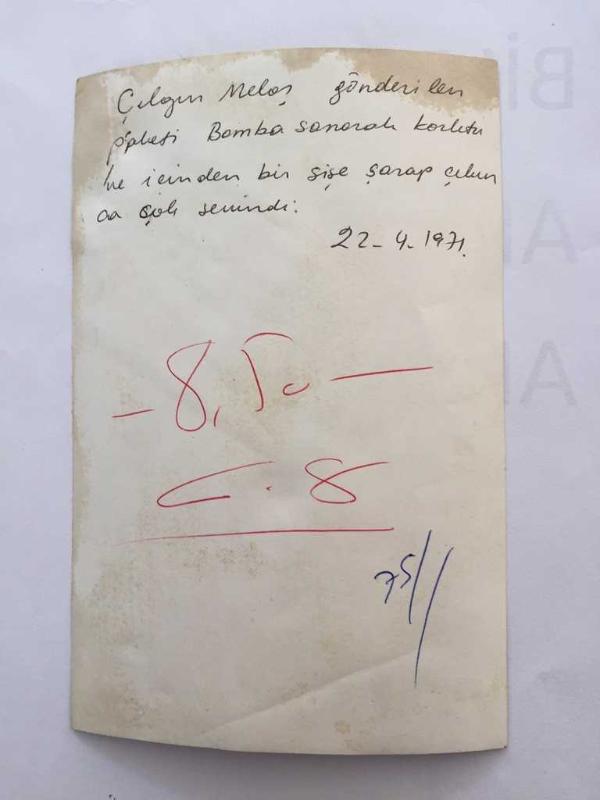 Çılgın Meloş gönderilen
paketi Bomba sanarak korktu
ve içinden bir şişe şarap çıkın
ca çok sevindi.
22-4-1971.
- 8, 50 -
C. 8
75//